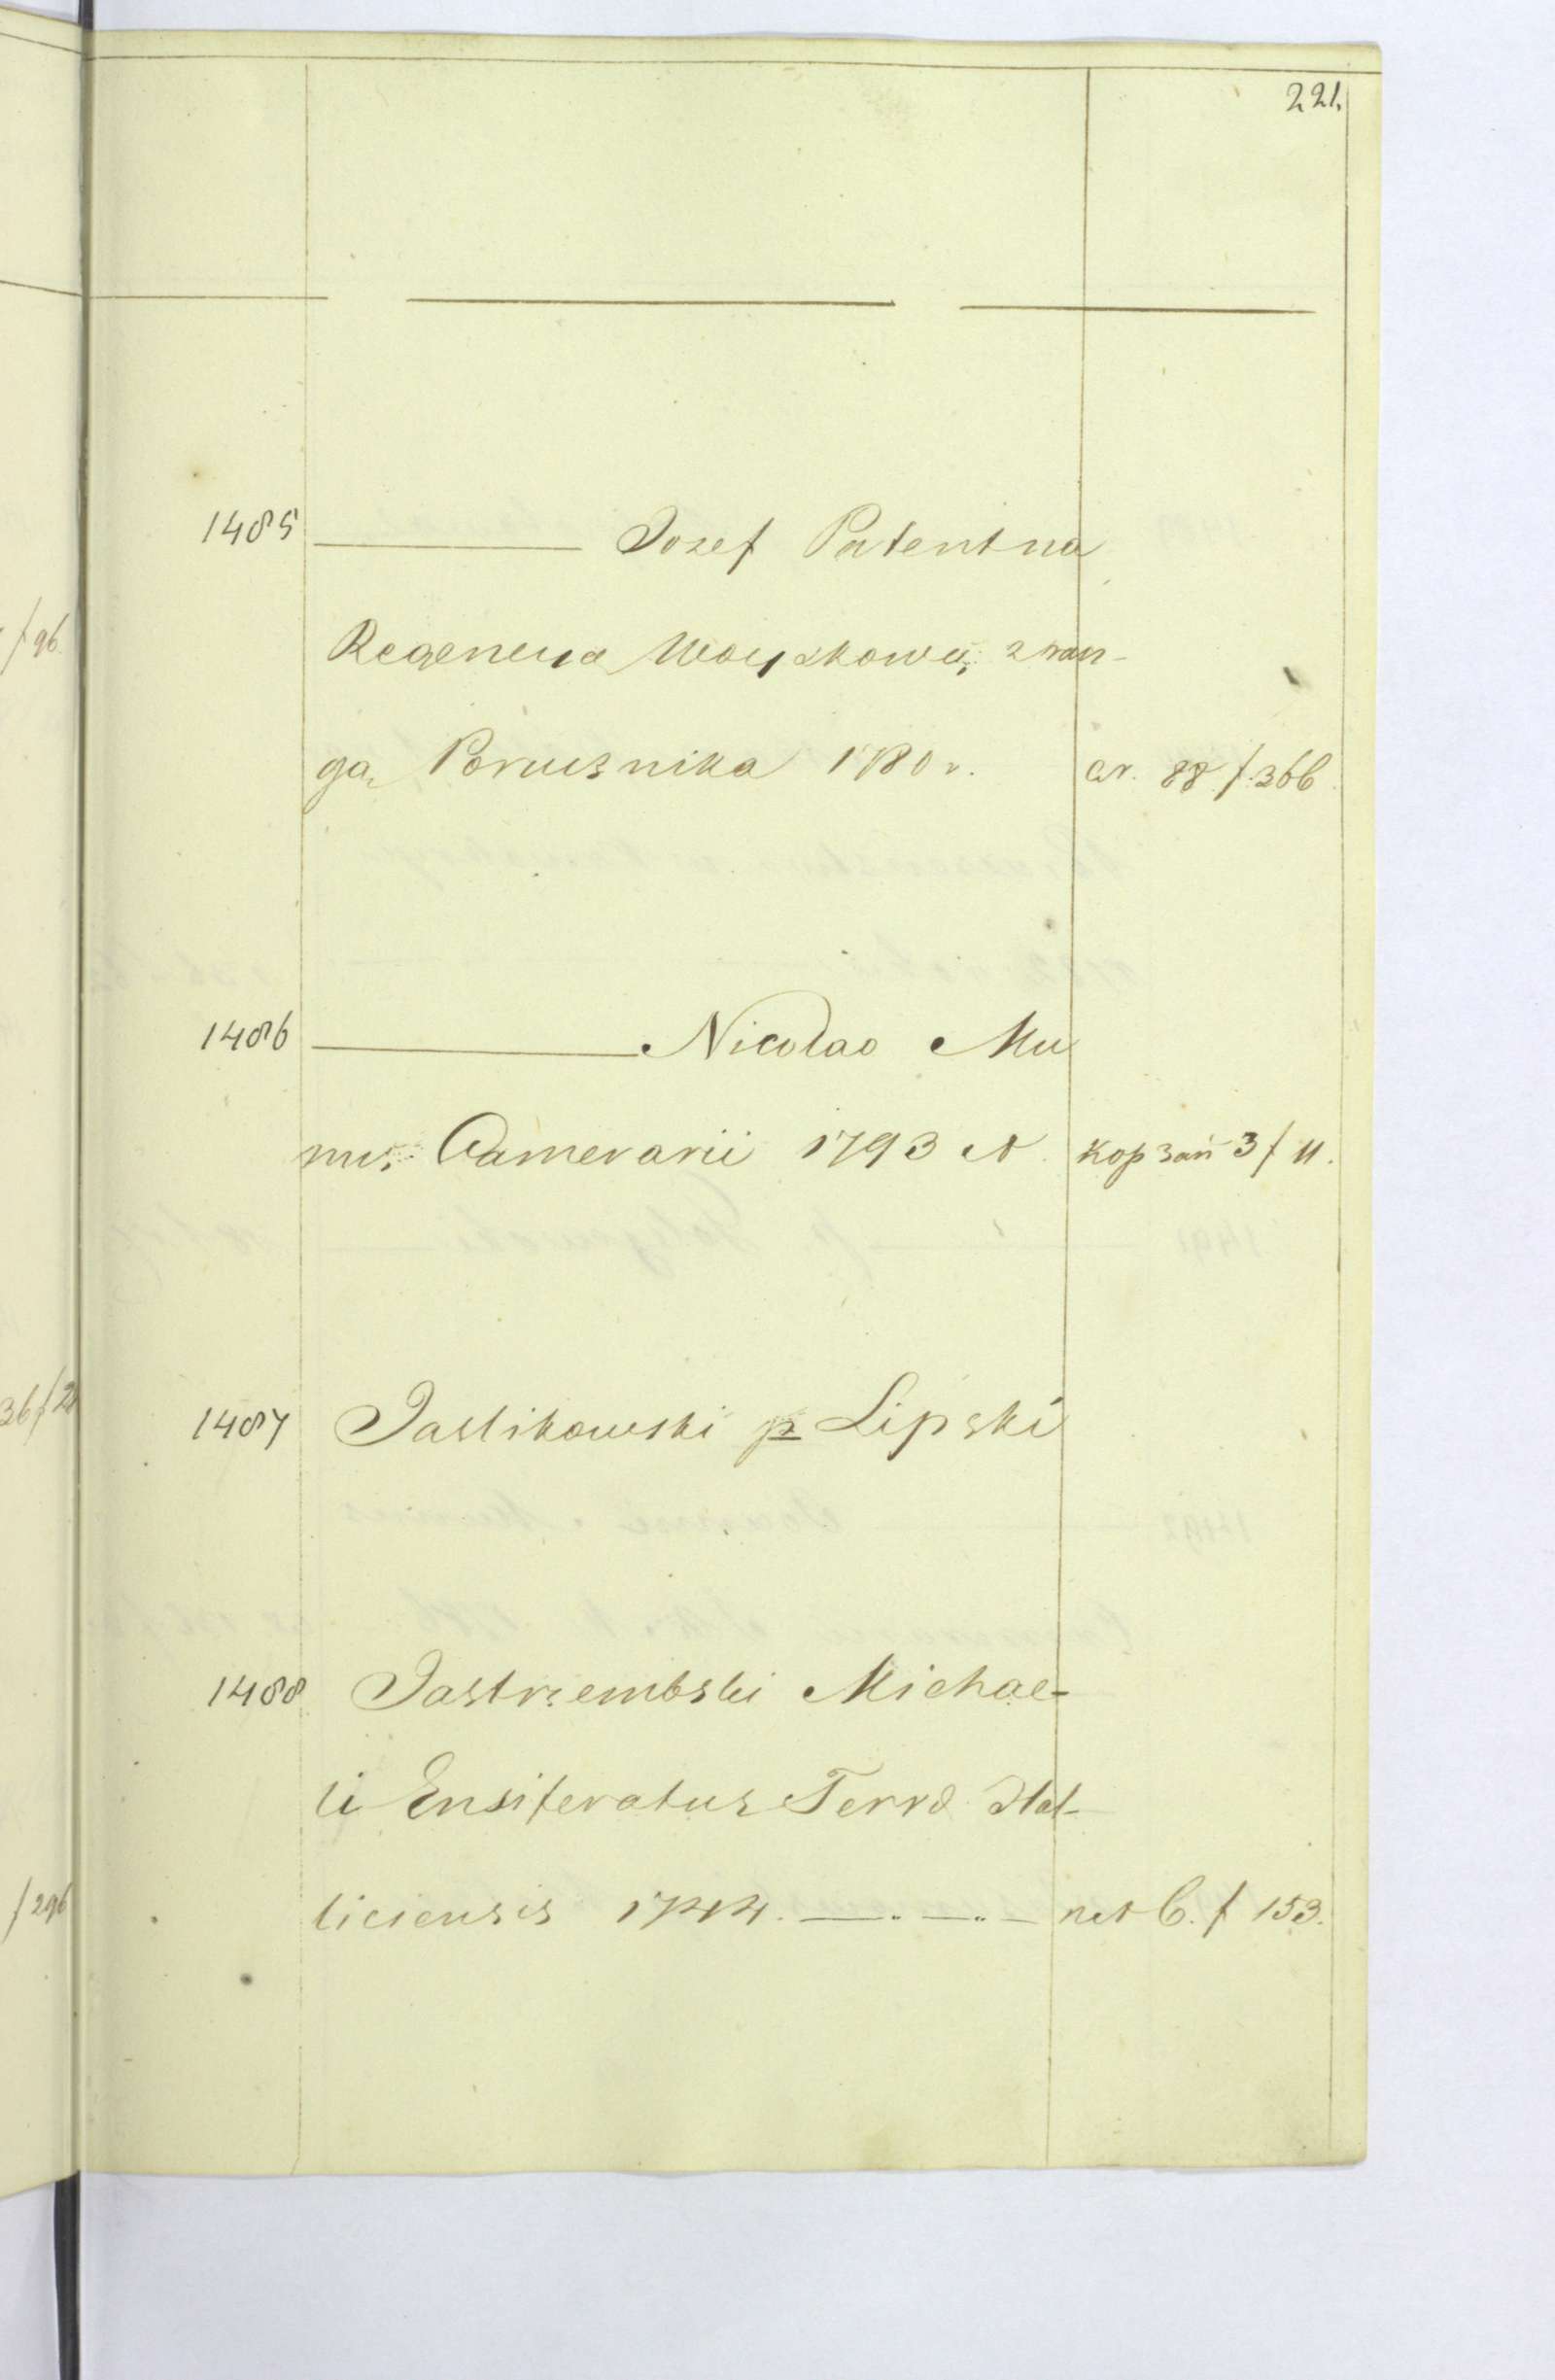 221.
1485 ——— Jozef Patent na
Regencyą Woyskową z ran-
gą Porucznika 1780 r. cr. 88 f. 366
1486 ——— Nicolao Mu
nus Camerarii 1793 кор зап 3 f 11.
1487 Jastikowski p Lipski
1488 Jastrzembski Michae-
li Ensiferatus Terrae Hal-
liciensis 1744. —..—..— C. f 153.
f 96
36 f 2
f 296